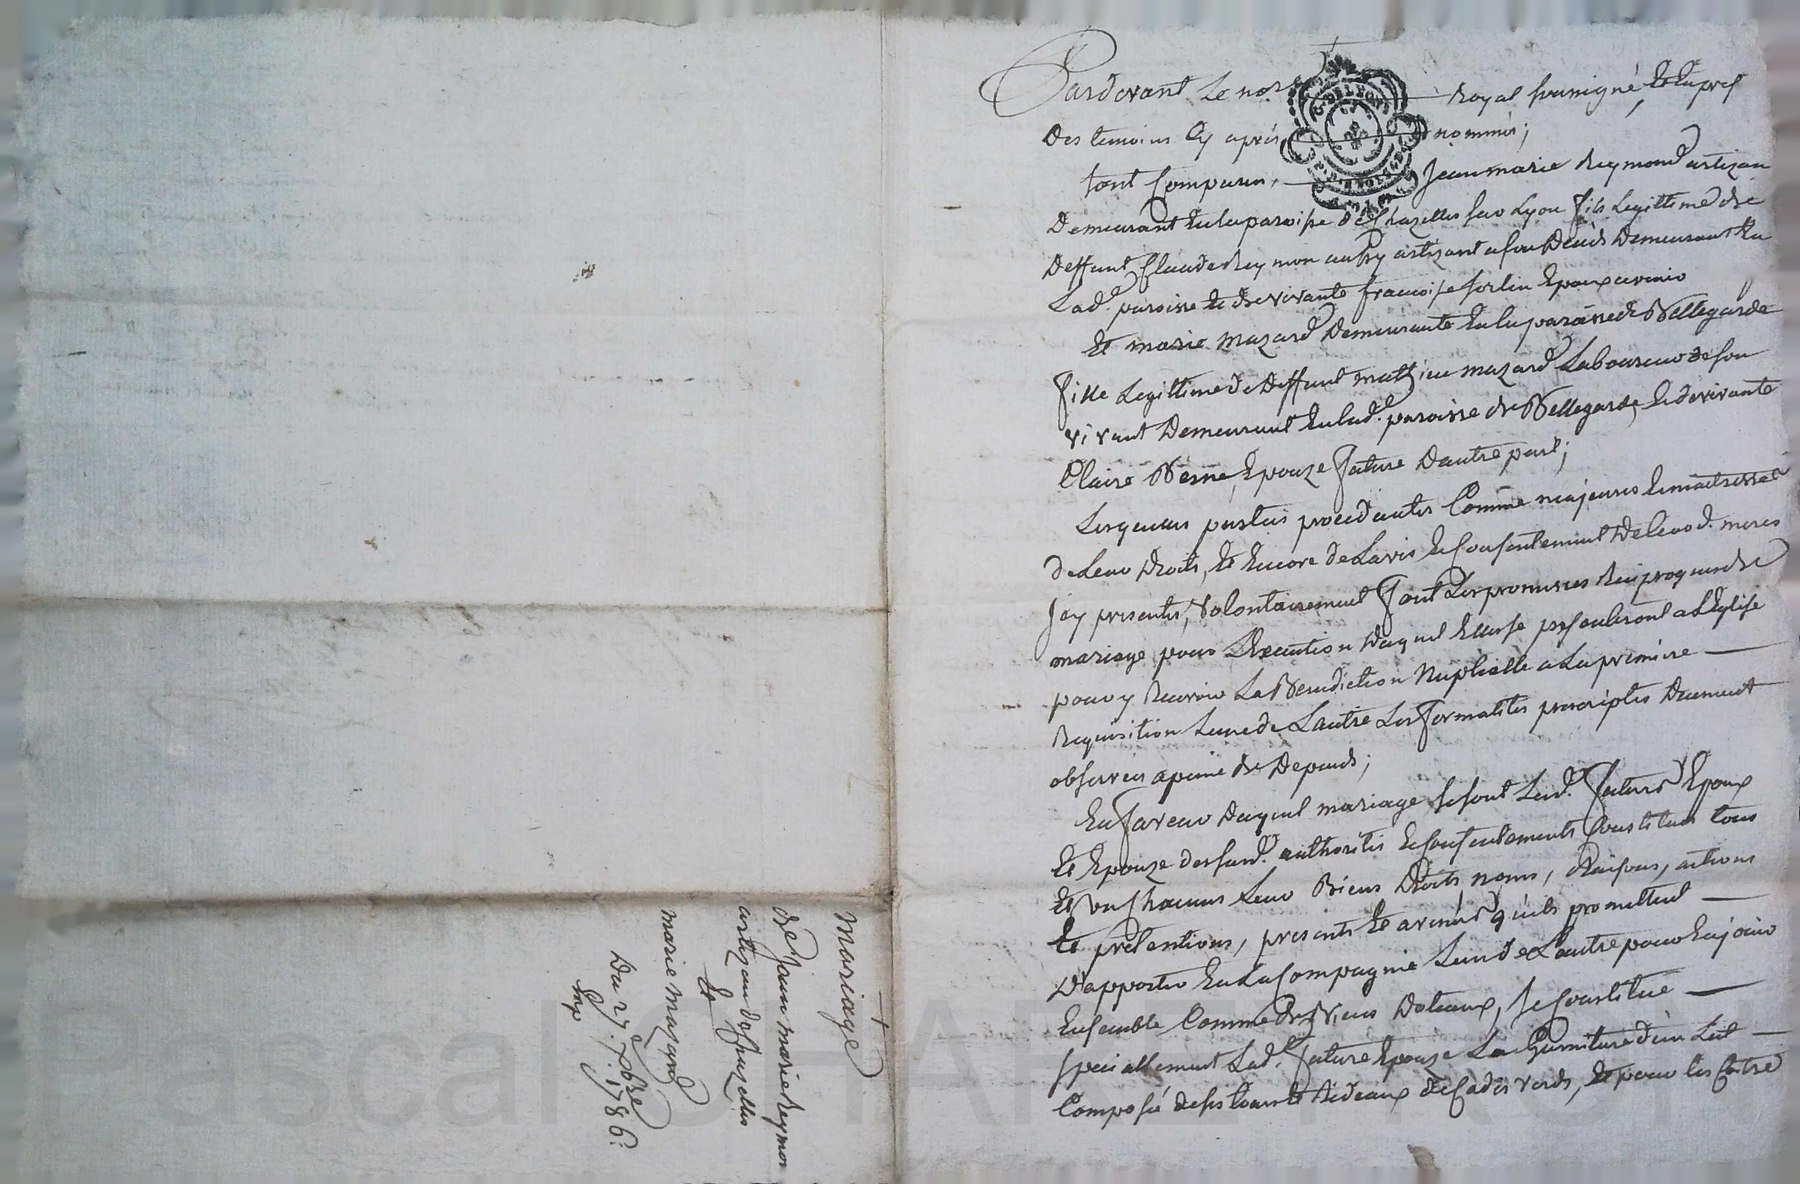 Pardevant Le not Royal soussigné, Et En pres
Des temoins Cy aprés nommés;
sont Comparus, Jean marie Reymond artizan
Demeurant En la paroisse de Chazelles sur Lyon fils Legittime de
Deffunt Claude Reymon aussy artizant a son Décès Demeurant En
Lad.e paroisse Et de vivante francoise Epoux avenir
Et marie mazard Demeurante En la paroisse de Bellegarde
fille Legittime de Deffunt mathieu mazard Laboureur de son
vivant Demeurant En lad.e paroisse de Bellegarde, Et de vivante
Claire Besne, Epouze future D'autre part;
Lesquelles parties procédantes Comme majeures Et maitresses
de Leur Droits, Et Encore de L'avis Et Consentement De Leurd. meres
Icy presentes, Volontairement font Les promesses Reciproques de
mariage pour L'Execution Duquel Elles se presenteront a L'Eglise
pour y Recevoir La Benediction Nuptialle a La premiere
Requisition L'une de L'autre Les formalités prescriptes Duement
observées a peine de Depends;
En faveur Duquel mariage se sont Lesd.t futurs Epoux
Et Epouze desurd.t authorités Et Consentements Constitués tous
Et un Chacuns Leur Biens Droits noms, Raisons, actions
Et prétentions, presents Et avenir qu'ils promettent
D'apporter En La Compagnie L'un de L'autre pour En jouir
Ensemble Comme De Biens Doteaux, se Constitue
specialement Lad.e future Epouze La Garniture d'un Lit
Composé de ses tours Et Rideaux de Cadis verds, Et pour les
mariage
de Jean marie Reymon
artizan de Chazelles
Et
marie mazard
Du 27.e 7bre
1786.
Exp